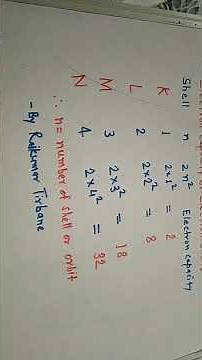 Shell n 2n² Electron capacity
K 1 2×1² = 2
L 2 2×2² = 8
M 3 2×3² = 18
N 4 2×4² = 32
∴ n = number of shell or orbit
- By Rajkumar Tirbane